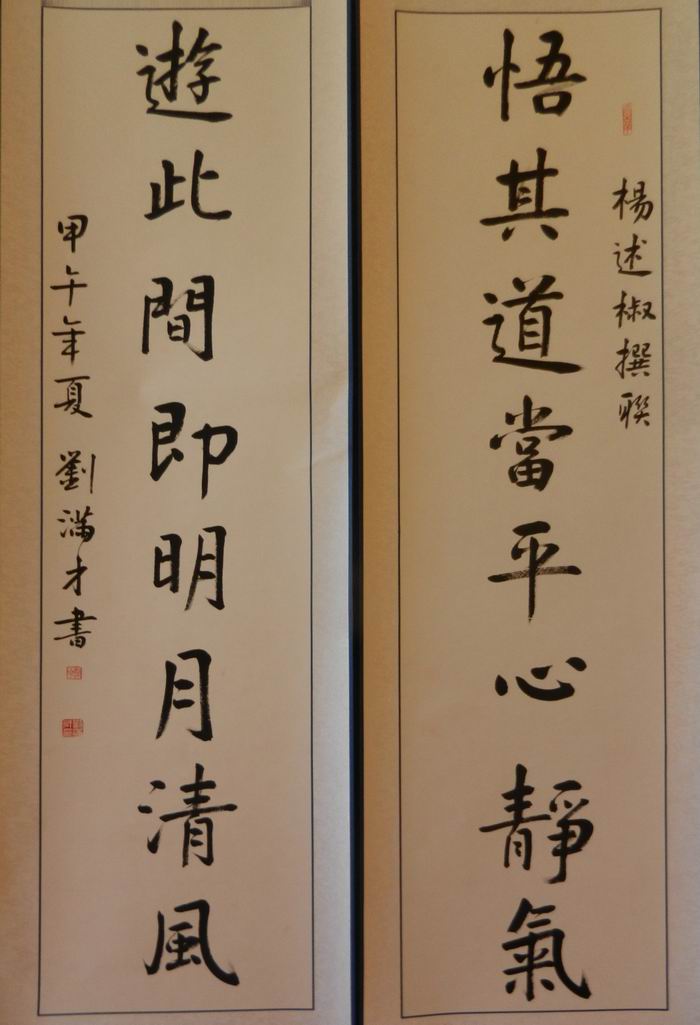 楊述椒撰聯
悟其道當平心靜氣
遊此間即明月清風
甲午年夏 劉滿才書